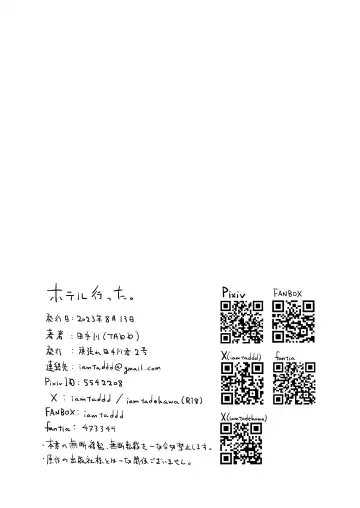 ホテル行った。
発行日：2023年8月13日
著者：田手川(TAbb)
発行：頑張れ田手川君2号
連絡先：iamtaddd@gmail.com
Pixiv ID：5542208
X：iamtaddd / iamtadehawa(R18)
FANBOX：iamtaddd
fantia：473344
・本書の無断複製、無断転載を一切禁止します。
・原作の出版社様とは一切関係ございません。
Pixiv
FANBOX
X(iamtaddd)
fantia
X(iamtadehawa)